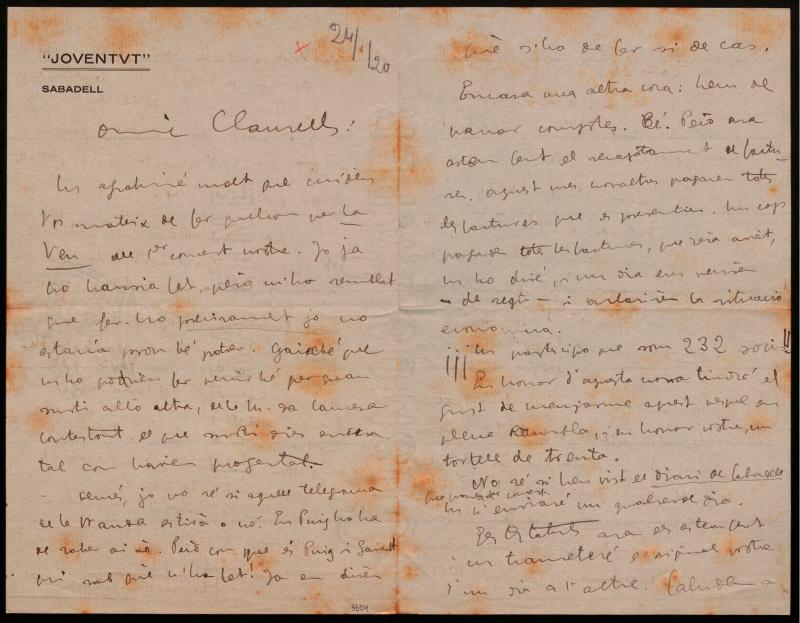 "JOVENTVT"
SABADELL
24/1/20
Amic Clausells:
Us agrahiré molt que cuideu
Vos mateix de fer quelcom per la
Veu del 1er concert nostre. Jo ja
ho hauria fet, però m'ho semblat
que fer-ho precisament jo no
estaria prou bé potser. Gairebé que
m'ho podrieu fer també per quan
surti allò altre, de la
contestant el que surti dies enrera
tal com haviem projectat.
Demés, jo no sé si aquell telegrama
de la Wanda estirà o no. En Puig ho ha
de saber aixó. Però com que és Puig i Gairalt
qui sab què n'ha fet! Ja em direu
què s'ha de fer si de cas.
Encara una altra cosa: hem de
passar comptes. Bé. Però ara
estem fent el recaptament de factu-
res. Aquest mes, nosaltres pagarem totes
les factures que es presentin. Un cop
pagades totes les factures, que serà aviat,
us ho diré, i un dia ens veurem
- de segur - i aclarirem la situació
econòmica.
¡¡¡Us participo que som 232 socis!!
En honor d'aquesta nova tindré el
gust de menjarme aquest vespre en
plena Rambla, i en honor vostre, un
tortell de trenta.
No sé si heu vist el diari de Sabadell
que parla del concert.
Us n'enviaré un qualsevol dia.
Els Estatuts ara es estan fent
i us trametré l'original vostre
d'un dia a l'altre. Saludeu a
3604